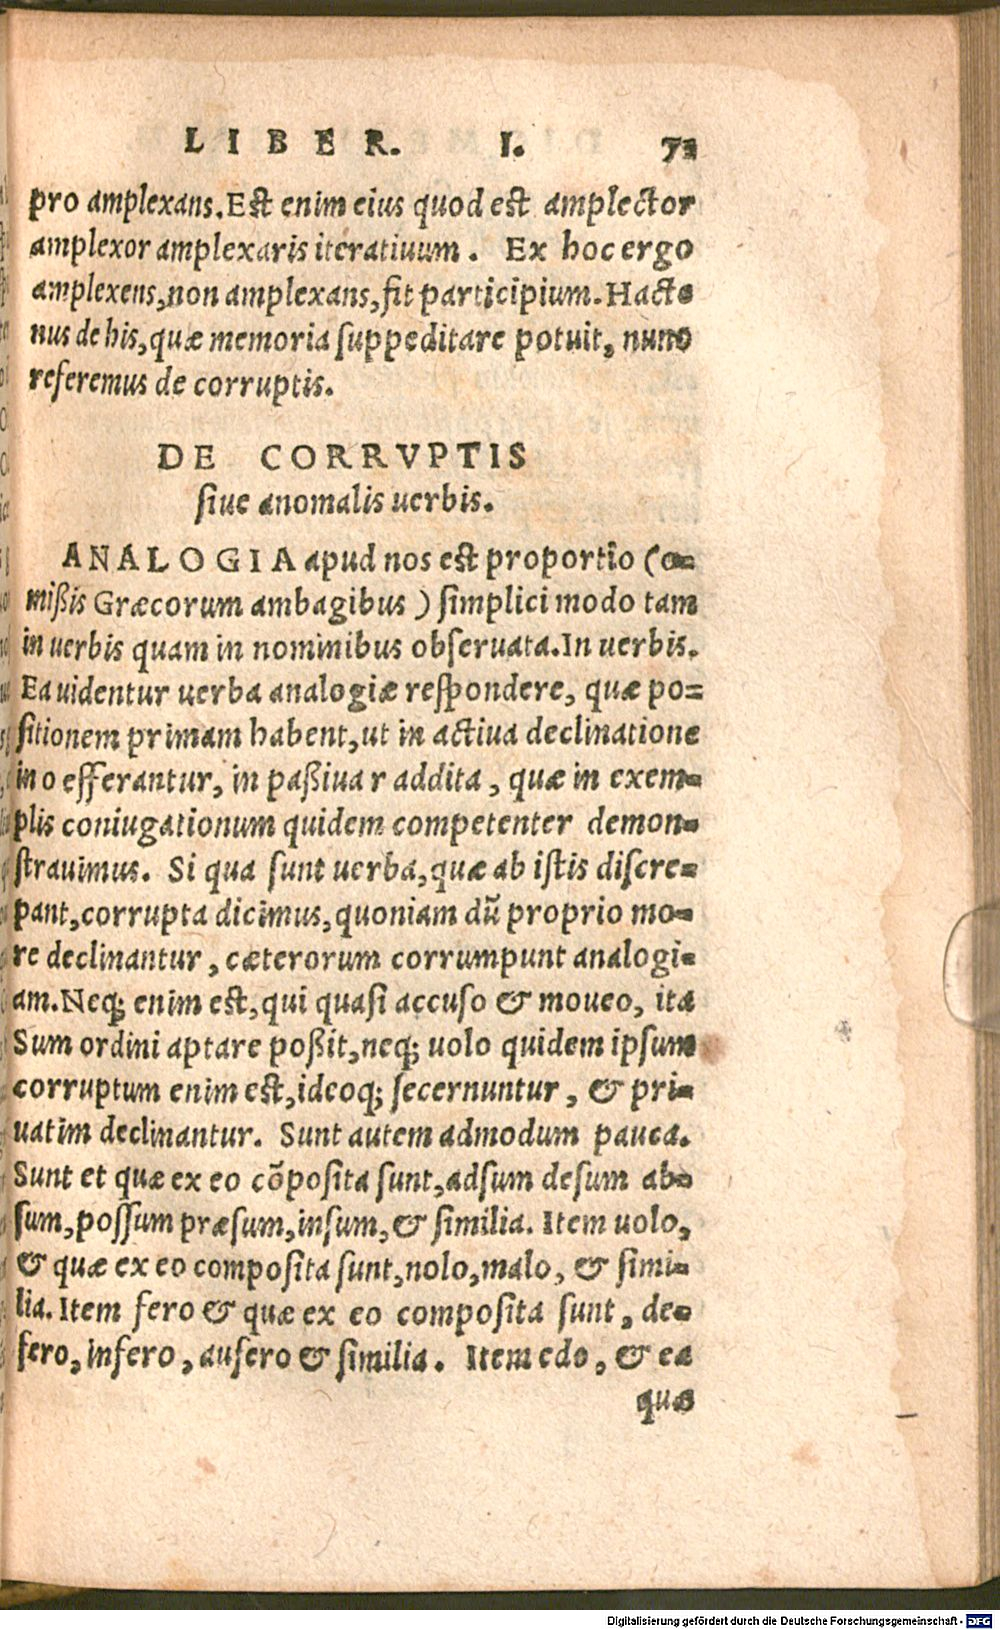 LIBER. I. 73
pro amplexans. Est enim eius quod est amplector
amplexor amplexaris iteratiuum. Ex hoc ergo
amplexens, non amplexans, fit participium. Hacte
nus de his, quæ memoria suppeditare potuit, nunc
referemus de corruptis.
DE CORRVPTIS
siue anomalis uerbis.
ANALOGIA apud nos est proportio (o=
mißis Græcorum ambagibus) simplici modo tam
in uerbis quam in nominibus obseruata. In uerbis.
Ea uidentur uerba analogiæ respondere, quæ po=
sitionem primam habent, ut in actiua declinatione
in o efferantur, in paßiua r addita, quæ in exem=
plis coniugationum quidem competenter demon=
strauimus. Si qua sunt uerba, quæ ab istis discre=
pant, corrupta dicimus, quoniam dū proprio mo=
re declinantur, cæterorum corrumpunt analogi=
am. Neq; enim est, qui quasi accuso & moueo, ita
Sum ordini aptare poßit, neq; uolo quidem ipsum
corruptum enim est, ideoq; secernuntur, & pri=
uatim declinantur. Sunt autem admodum pauca.
Sunt et quæ ex eo cōposita sunt, adsum desum ab=
sum, possum præsum, insum, & similia. Item uolo,
& quæ ex eo composita sunt, nolo, malo, & simi=
lia. Item fero & quæ ex eo composita sunt, de=
fero, infero, aufero & similia. Item edo, & ea
quæ
Digitalisierung gefördert durch die Deutsche Forschungsgemeinschaft - DFG